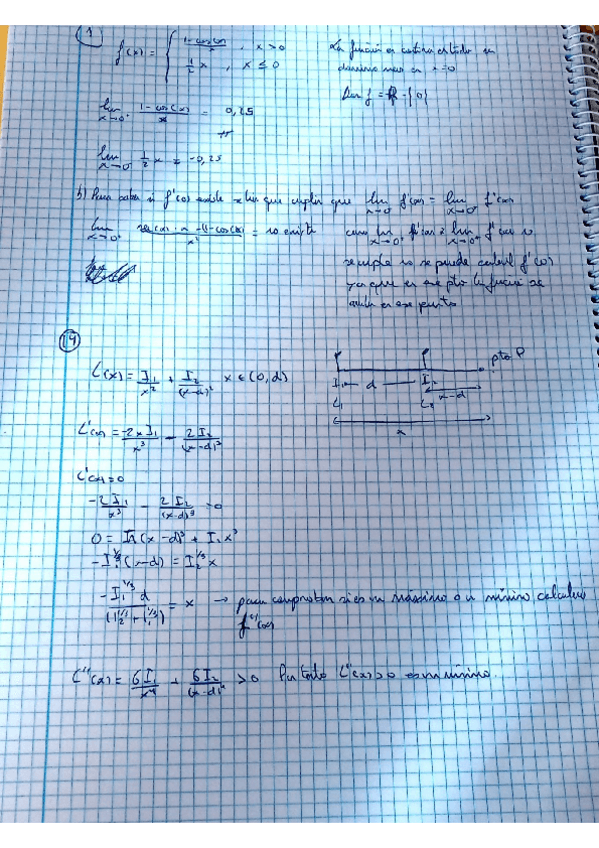 1
f(x) = { 1-cos(x)/x , x > 0
1/2 x , x ≤ 0
La función es continua en todo su
dominio menos en x=0
Dom f = R - {0}
lim x→0+ 1-cos(x)/x = 0,25
lim x→0- 1/2 x = -0,25
b) Para saber si f'(0) existe que cumplir que lim x→0- f'(x) = lim x→0+ f'(x)
lim x→0+ sen(x)·x-(1-cos(x))/x² = no existe
como lim x→0+ f'(x) = lim x→0- f'(x) no
se cumple no se puede f'(0)
ya que en ese pto la función se
en ese punto
14
L(x) = I₁/x² + I₂/(x-d)² x ∈ (0,d)
pto P
I₁ — d — I₂
x-d
L₁ L₂
x
L'(x) = -2xI₁/x³ - 2I₂/(x-d)³
L'(x)=0
-2I₁/x³ - 2I₂/(x-d)³ = 0
0 = I₁(x-d)³ + I₂x³
-I₁^1/3 (x-d) = I₂^1/3 x
-I₁^1/3 d/(I₂^1/3 + I₁^1/3) = x → para comprobar si es un máximo o un mínimo calculo
f''(x)
L''(x) = 6I₁/x⁴ + 6I₂/(x-d)⁴ > 0 Por tanto L''(x) > 0 es un mínimo.